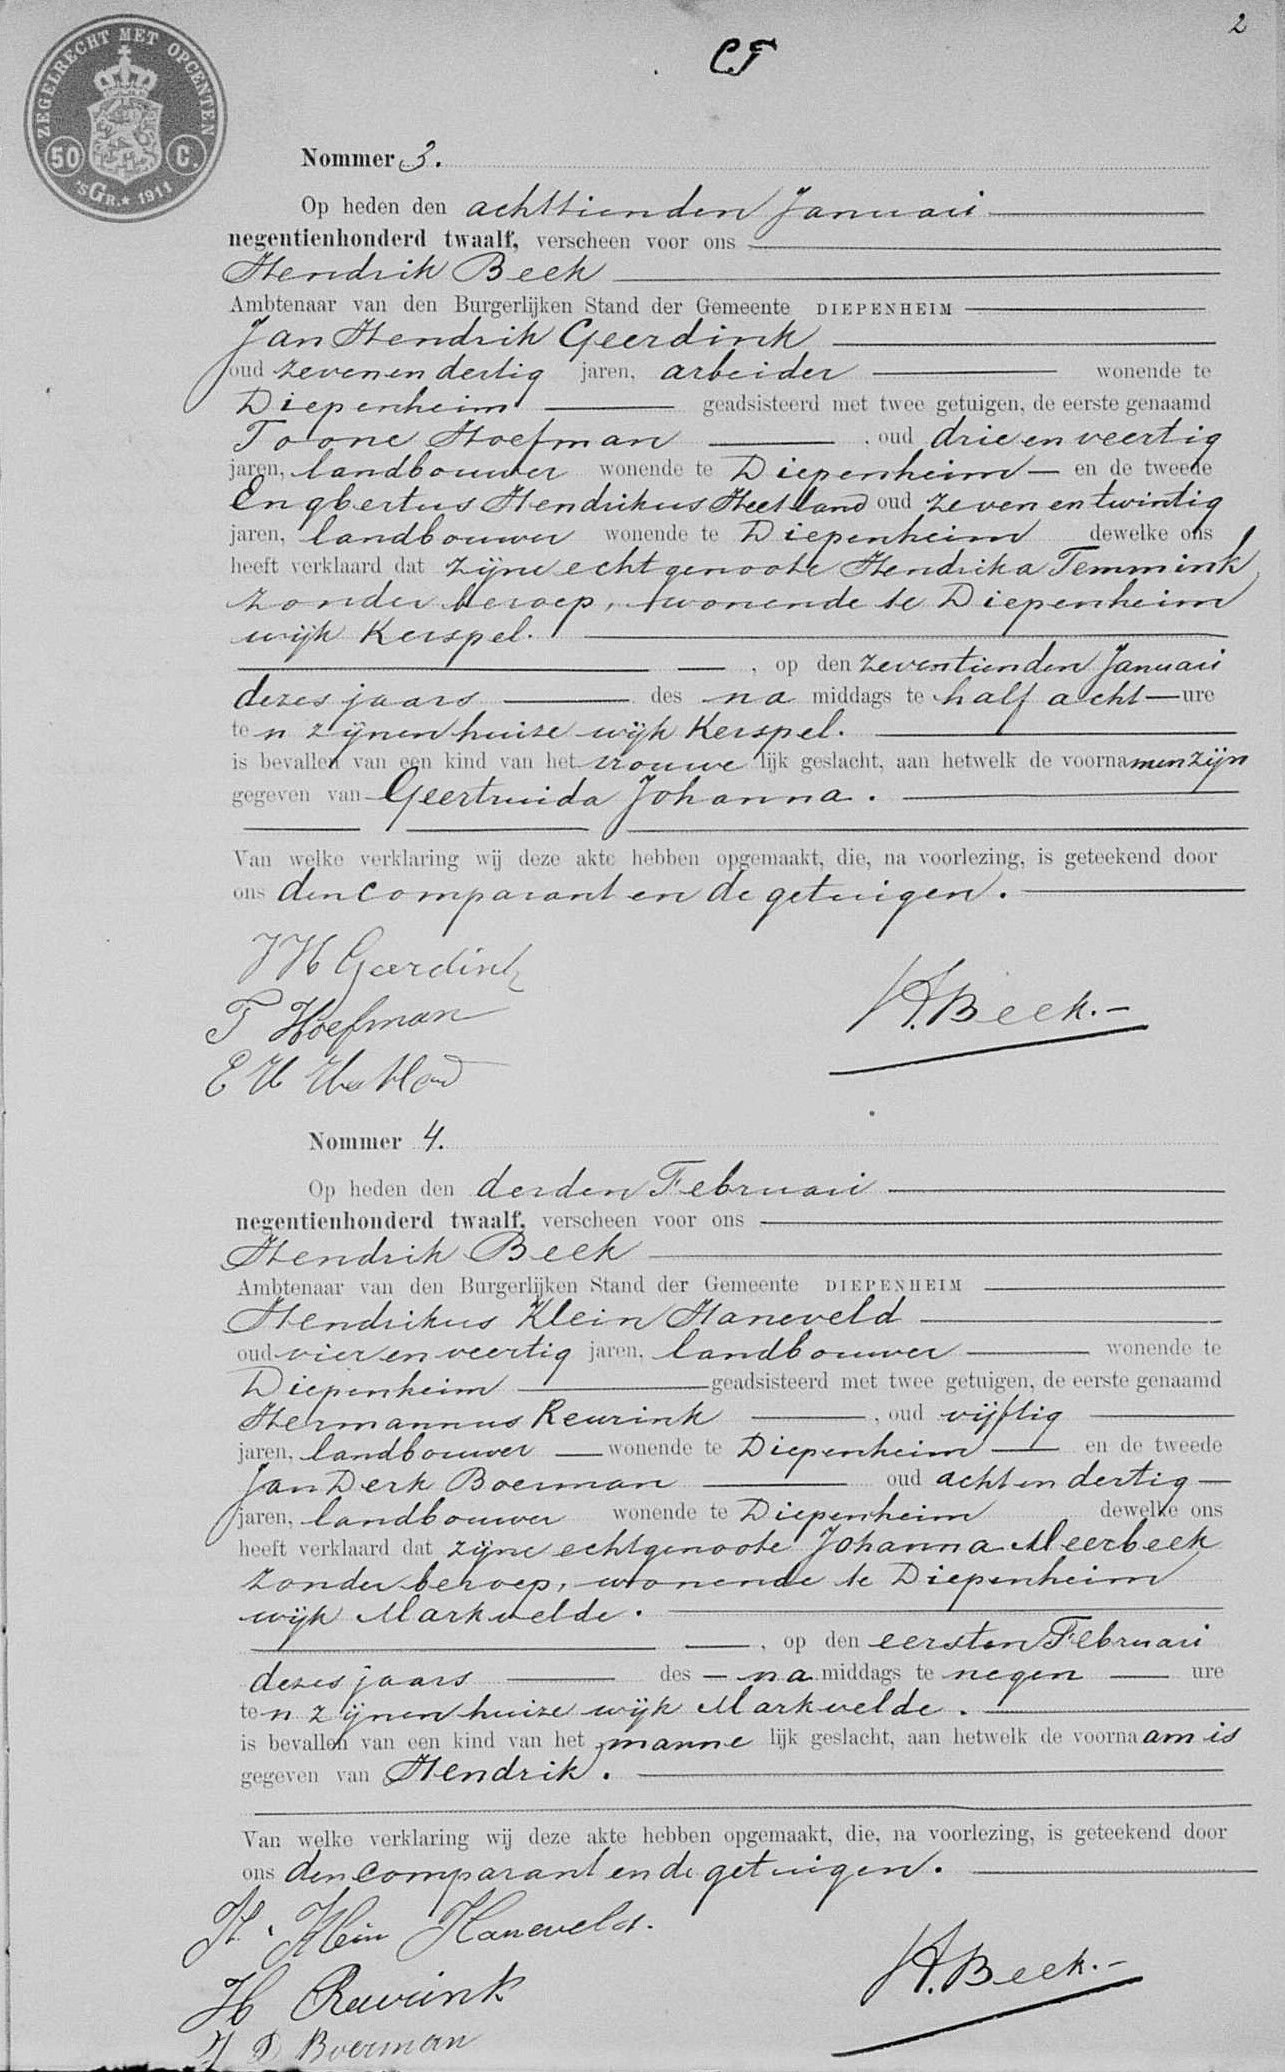 2
ZEGELRECHT MET OPCENTEN
50 C.
'SGR.★1911
Nommer 3.
Op heden den achttienden Januari
negentienhonderd twaalf, verscheen voor ons
Hendrik Beek
Ambtenaar van den Burgerlijken Stand der Gemeente DIEPENHEIM
Jan Hendrik Geerdink
oud zeven en dertig jaren, arbeider wonende te
Diepenheim geadsisteerd met twee getuigen, de eerste genaamd
Toone Hoefman , oud drie en veertig
jaren, landbouwer wonende te Diepenheim en de tweede
Engbertus Hendrikus Heetland oud zeven en twintig
jaren, landbouwer wonende te Diepenheim dewelke ons
heeft verklaard dat zijne echtgenoote Hendrika Temmink,
zonder beroep, wonende te Diepenheim
wijk Kerspel.
, op den zeventienden Januari
dezes jaars des na middags te half acht ure
ten zijnen huize wijk Kerspel.
is bevallen van een kind van het vrouwe lijk geslacht, aan hetwelk de voornamen zijn
gegeven van Geertruida Johanna.
Van welke verklaring wij deze akte hebben opgemaakt, die, na voorlezing, is geteekend door
ons den comparant en de getuigen.
J H Geerdink
T Hoefman
H. Beek.
E H Heetland
Nommer 4.
Op heden den derden Februari
negentienhonderd twaalf, verscheen voor ons
Hendrik Beek
Ambtenaar van den Burgerlijken Stand der Gemeente DIEPENHEIM
Hendrikus Klein Haneveld
oud vier en veertig jaren, landbouwer wonende te
Diepenheim geadsisteerd met twee getuigen, de eerste genaamd
Hermannus Reurink , oud vijftig
jaren, landbouwer wonende te Diepenheim en de tweede
Jan Derk Boerman oud acht en dertig
jaren, landbouwer wonende te Diepenheim dewelke ons
heeft verklaard dat zijne echtgenoote Johanna Meerbeek
zonder beroep, wonende te Diepenheim
wijk Markvelde.
, op den eersten Februari
dezes jaars des na middags te negen ure
ten zijnen huize wijk Markvelde.
is bevallen van een kind van het manne lijk geslacht, aan hetwelk de voornaam is
gegeven van Hendrik.
Van welke verklaring wij deze akte hebben opgemaakt, die, na voorlezing, is geteekend door
ons den comparant en de getuigen.
H. Klein Haneveld.
H Reurink
H. Beek.
J D Boerman